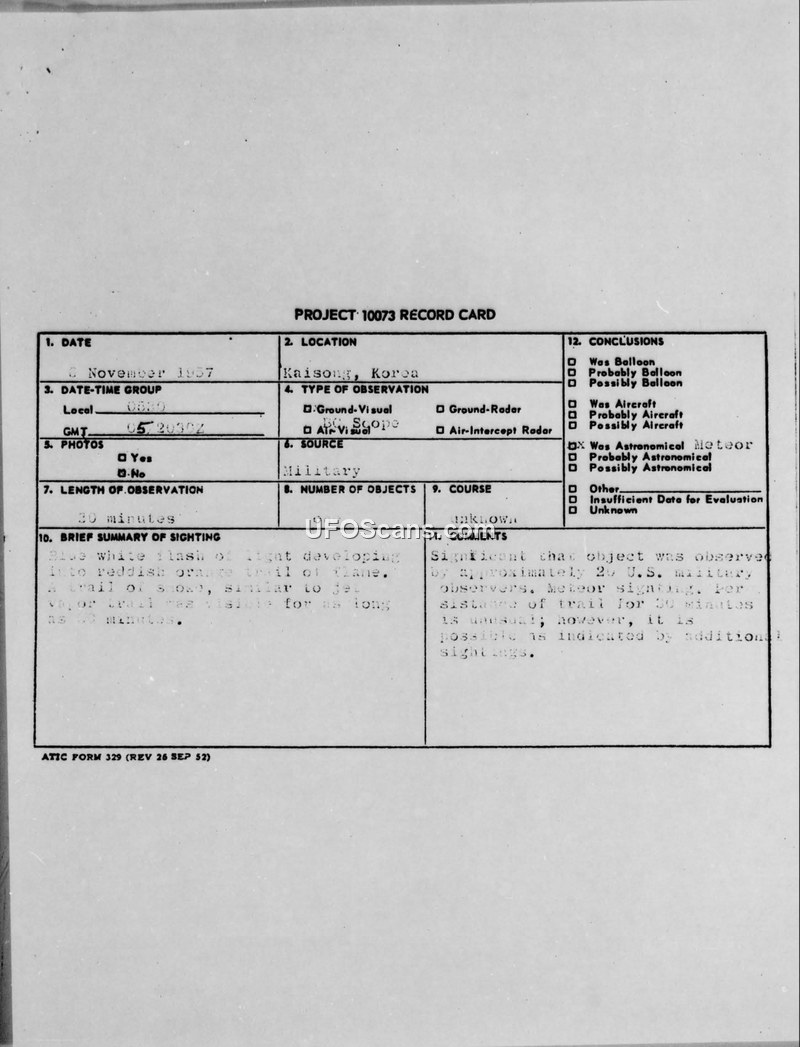 PROJECT 10073 RECORD CARD
1. DATE
November 1957
2. LOCATION
Kaisong, Korea
12. CONCLUSIONS
Was Balloon
Probably Balloon
Possibly Balloon
Was Aircraft
Probably Aircraft
Possibly Aircraft
x Was Astronomical Meteor
Probably Astronomical
Possibly Astronomical
Other
Insufficient Data for Evaluation
Unknown
3. DATE-TIME GROUP
Local
GMT 05
4. TYPE OF OBSERVATION
Ground-Visual
Ground-Radar
Scope
Air-Visual
Air-Intercept Radar
5. PHOTOS
Yes
No
6. SOURCE
Military
7. LENGTH OF OBSERVATION
minutes
8. NUMBER OF OBJECTS
9. COURSE
unknown
UFOScans.com
10. BRIEF SUMMARY OF SIGHTING
white flash of light developing
into reddish orange trail of flame.
A trail of smoke, similar to jet
vapor trail was visible for as long
as minutes.
11. COMMENTS
Significant that object was observed
by approximately U.S. military
observers. Meteor sighting. Per-
sistance of trail for minutes
is unusual; however, it is
possible as indicated by additional
sightings.
ATIC FORM 329 (REV 26 SEP 52)